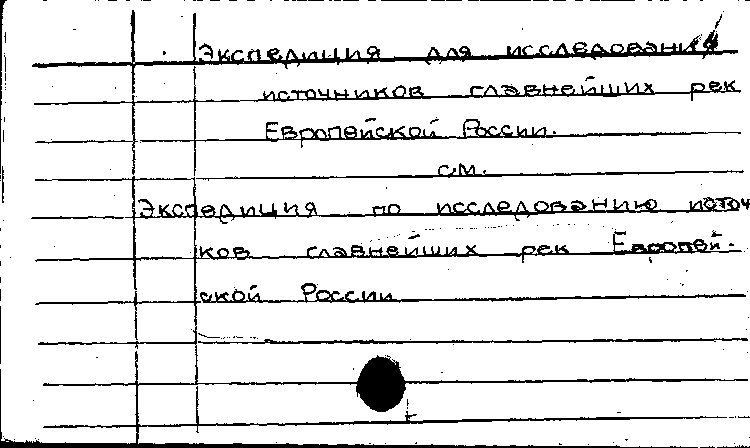 Экспедиция для исследования
источников главнейших рек
Европейской России.
см.
Экспедиция по исследованию источ
ков главнейших рек Европей-
ской России